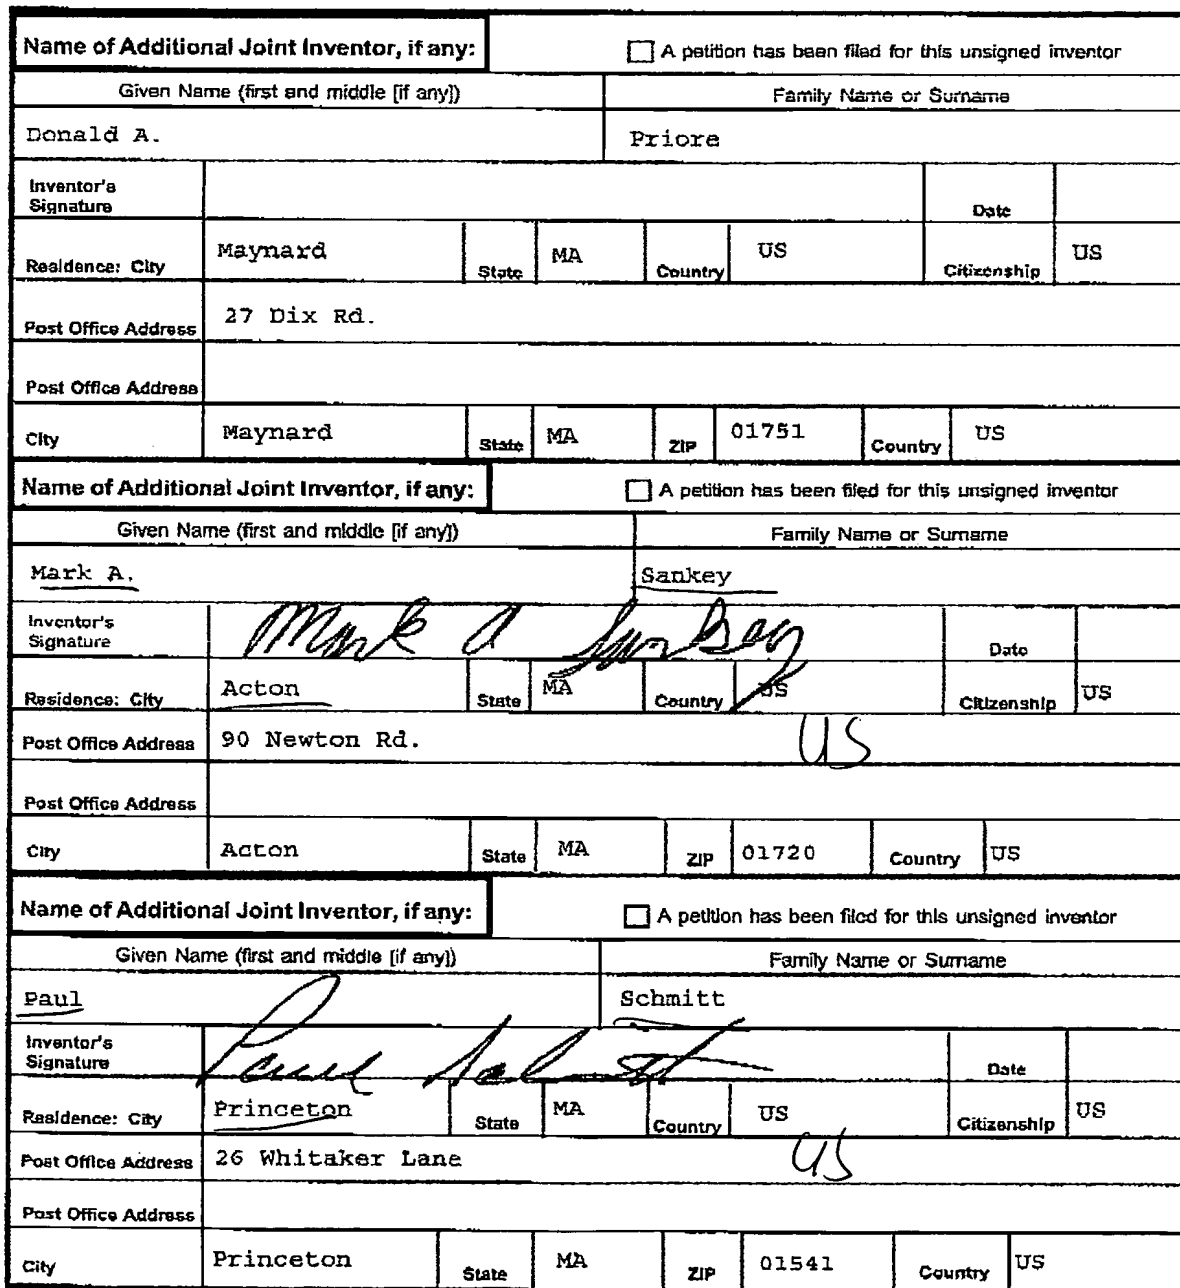 Name of Additional Joint Inventor, if any: A petition has been filed for this unsigned inventor
Given Name (first and middle [if any]) Family Name or Surname
Donald A. Priore
Inventor's
Signature Date
Residence: City Maynard State MA Country US Citizenship US
Post Office Address 27 Dix Rd.
Post Office Address
City Maynard State MA ZIP 01751 Country US
Name of Additional Joint Inventor, if any: A petition has been filed for this unsigned inventor
Given Name (first and middle [if any]) Family Name or Surname
Mark A. Sankey
Inventor's
Signature Mark A Sankey Date
Residence: City Acton State MA Country US Citizenship US
Post Office Address 90 Newton Rd. US
Post Office Address
City Acton State MA ZIP 01720 Country US
Name of Additional Joint Inventor, if any: A petition has been filed for this unsigned inventor
Given Name (first and middle [if any]) Family Name or Surname
Paul Schmitt
Inventor's
Signature Paul Schmitt Date
Residence: City Princeton State MA Country US Citizenship US
Post Office Address 26 Whitaker Lane US
Post Office Address
City Princeton State MA ZIP 01541 Country US